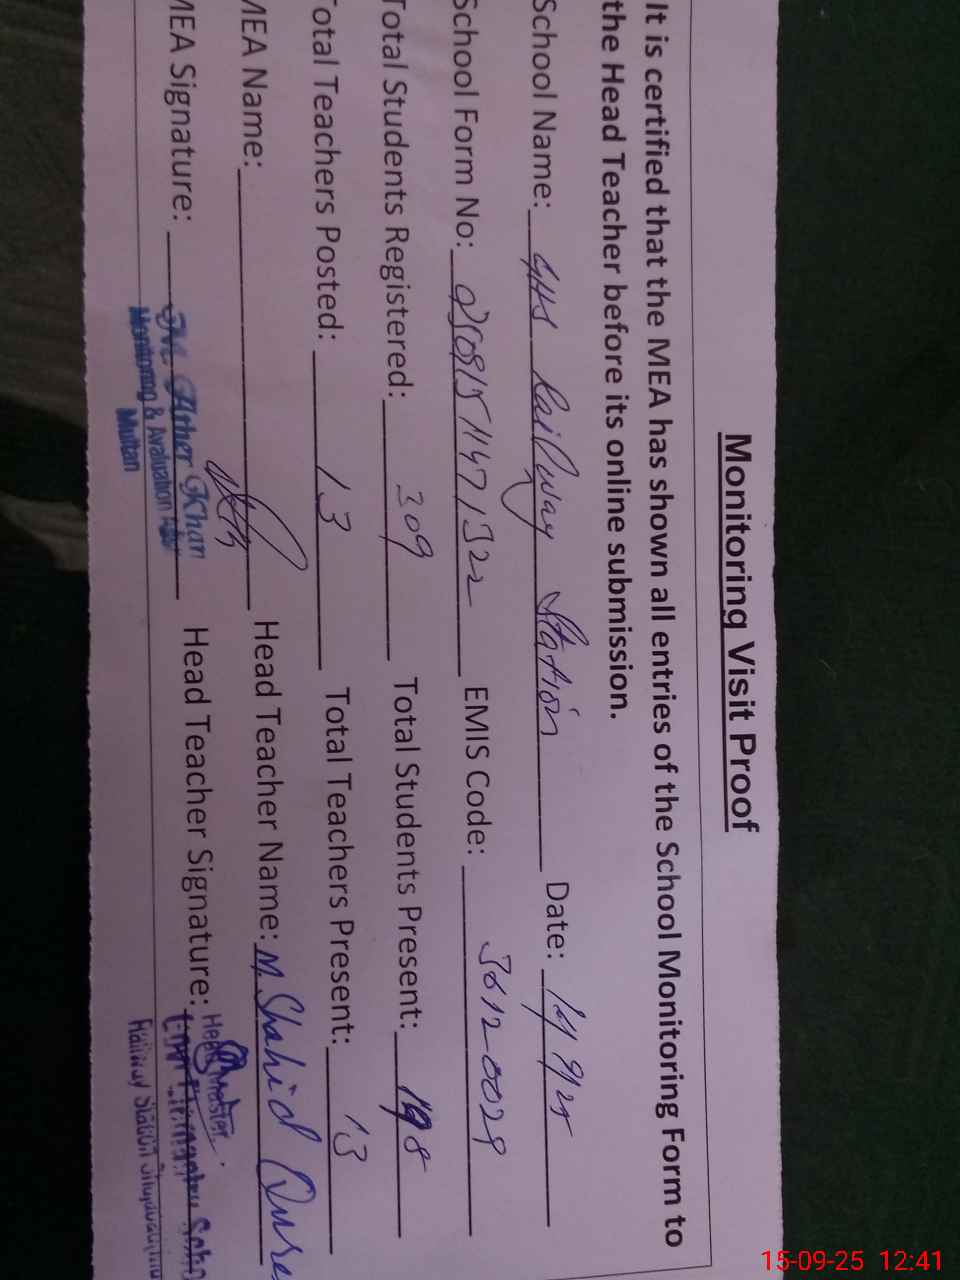 Monitoring Visit Proof
It is certified that the MEA has shown all entries of the School Monitoring Form to
the Head Teacher before its online submission.
School Name: GHS Railway Station Date:
School Form No: EMIS Code: 36120029
Total Students Registered: 309 Total Students Present: 198
Total Teachers Posted: 13 Total Teachers Present: 13
MEA Name: Head Teacher Name: M. Shahid
MEA Signature: Head Teacher Signature:
Ather Khan
Monitoring &
Multan
Headmaster
Railway Station
15-09-25 12:41